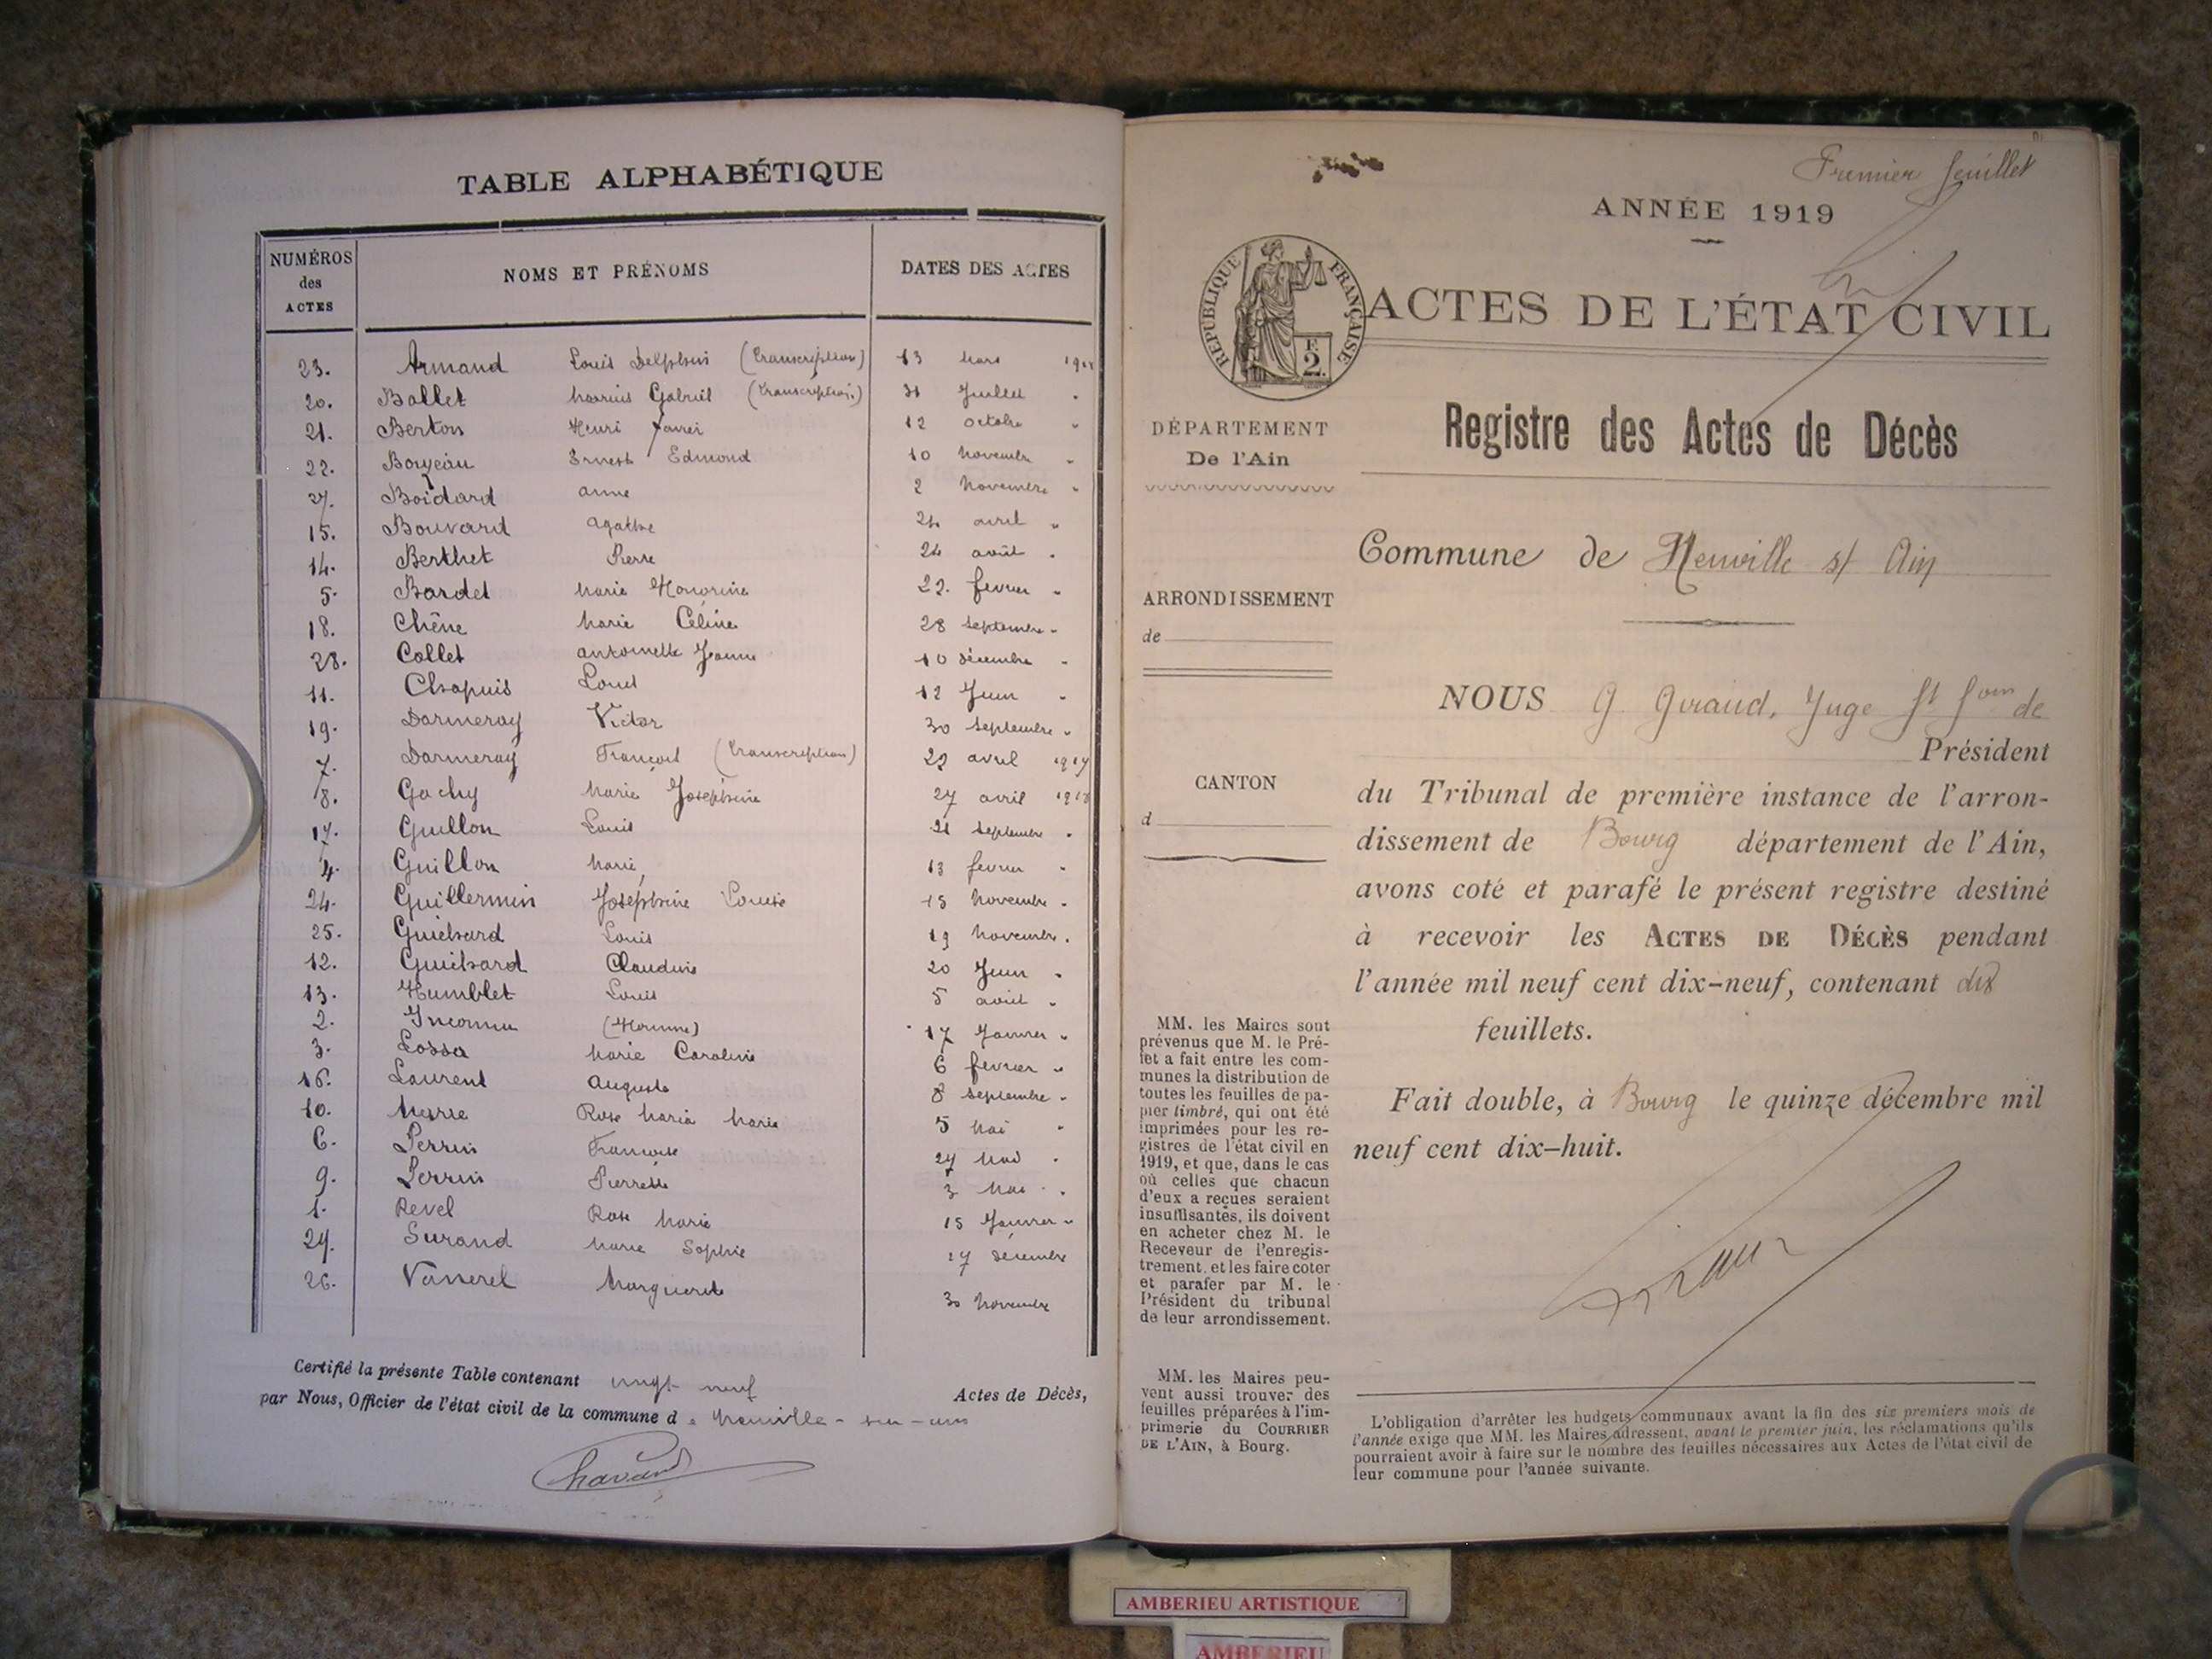 TABLE ALPHABÉTIQUE
NUMÉROS des ACTES NOMS ET PRÉNOMS DATES DES ACTES
23. Armand Louis Delphin (transcription) 13 mars
20. Ballet Marius Gabriel (transcription) 31 Juillet "
21. Berton Henri 12 octobre "
22. Ernest Edmond 10 novembre "
27. Boidard anne 2 novembre "
15. Bouvard agathe 24 avril "
14. Berthet Pierre 24 août "
5. Bardet Marie Honorine 22. fevrier "
18. Chêne Marie Céline 28 septembre "
28. Collet antoinette Jeanne 10 décembre "
11. Chapuis Louis 12 Juin "
19. Darmeray Victor 30 septembre "
7. Darmeray François (transcription) 22 avril 1917
8. Gachy Marie Joséphine 27 avril 1918
17. Guillon Louis 21 septembre "
4. Guillon Marie 13 fevrier "
24. Guillermin Joséphine Louise 15 novembre "
25. Guichard Louis 19 novembre "
12. Guichard Claudius 20 Juin "
13. Humblet Louis 5 août "
2. Inconnu (Homme) 17 Janvier "
3. Lossa Marie Caroline 6 fevrier "
16. Laurent Auguste 8 septembre "
10. Rose Maria Marie 5 mai "
6. Perrin Françoise 27 "
9. Perrin Pierrette 3 mai "
1. Revel Rose Marie 15 Janvier "
29. Surand Marie Sophie 17 décembre
26. Vanerel Marguerite 30 novembre
Certifié la présente Table contenant vingt neuf Actes de Décès,
par Nous, Officier de l'état civil de la commune de Neuville-sur-ain
Premier feuillet
ANNÉE 1919
RÉPUBLIQUE FRANÇAISE
F. 2.
ACTES DE L'ÉTAT CIVIL
DÉPARTEMENT
De l'Ain
ARRONDISSEMENT
de
CANTON
d
MM. les Maires sont
prévenus que M. le Pré-
fet a fait entre les com-
munes la distribution de
toutes les feuilles de pa-
pier timbré, qui ont été
imprimées pour les re-
gistres de l'état civil en
1919, et que, dans le cas
où celles que chacun
d'eux a reçues seraient
insuffisantes, ils doivent
en acheter chez M. le
Receveur de l'enregis-
trement, et les faire coter
et parafer par M. le
Président du tribunal
de leur arrondissement.
MM. les Maires peu-
vent aussi trouver des
feuilles préparées à l'im-
primerie du COURRIER
DE L'AIN, à Bourg.
Registre des Actes de Décès
Commune de Neuville s/ Ain
NOUS G Giraud, Juge de
Président
du Tribunal de première instance de l'arron-
dissement de Bourg département de l'Ain,
avons coté et parafé le présent registre destiné
à recevoir les ACTES DE DÉCÈS pendant
l'année mil neuf cent dix-neuf, contenant dix
feuillets.
Fait double, à Bourg le quinze décembre mil
neuf cent dix-huit.
L'obligation d'arrêter les budgets communaux avant la fin des six premiers mois de
l'année exige que MM. les Maires adressent, avant le premier juin, les réclamations qu'ils
pourraient avoir à faire sur le nombre des feuilles nécessaires aux Actes de l'état civil de
leur commune pour l'année suivante.
AMBERIEU ARTISTIQUE
AMBERIEU